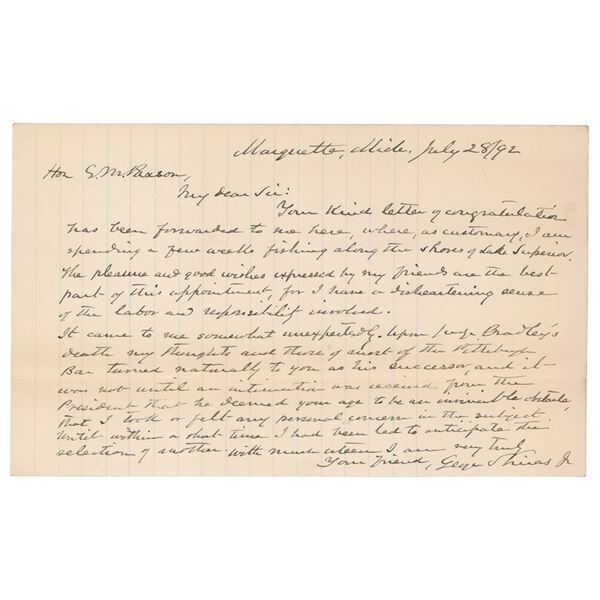 Marquette, Mich. July 28/92
Hon E. M. Paxson,
My dear Sir:
Your kind letter of congratulation
has been forwarded to me here, where, as customary, I am
spending a few weeks fishing along the shores of Lake Superior.
The pleasure and good wishes expressed by my friends are the best
part of this appointment, for I have a disheartening sense
of the labor and responsibility involved.
It came to me somewhat unexpectedly. Upon Judge Bradley's
death my thoughts and those of most of the Pittsburgh
Bar turned naturally to you as his successor, and it
was not until an intimation was received from the
President that he deemed your age to be an invincible obstacle,
that I took or felt any personal concern in the subject
Until within a short time I had been led to anticipate the
selection of another. With much esteem I am very truly
Your friend, George Shiras Jr